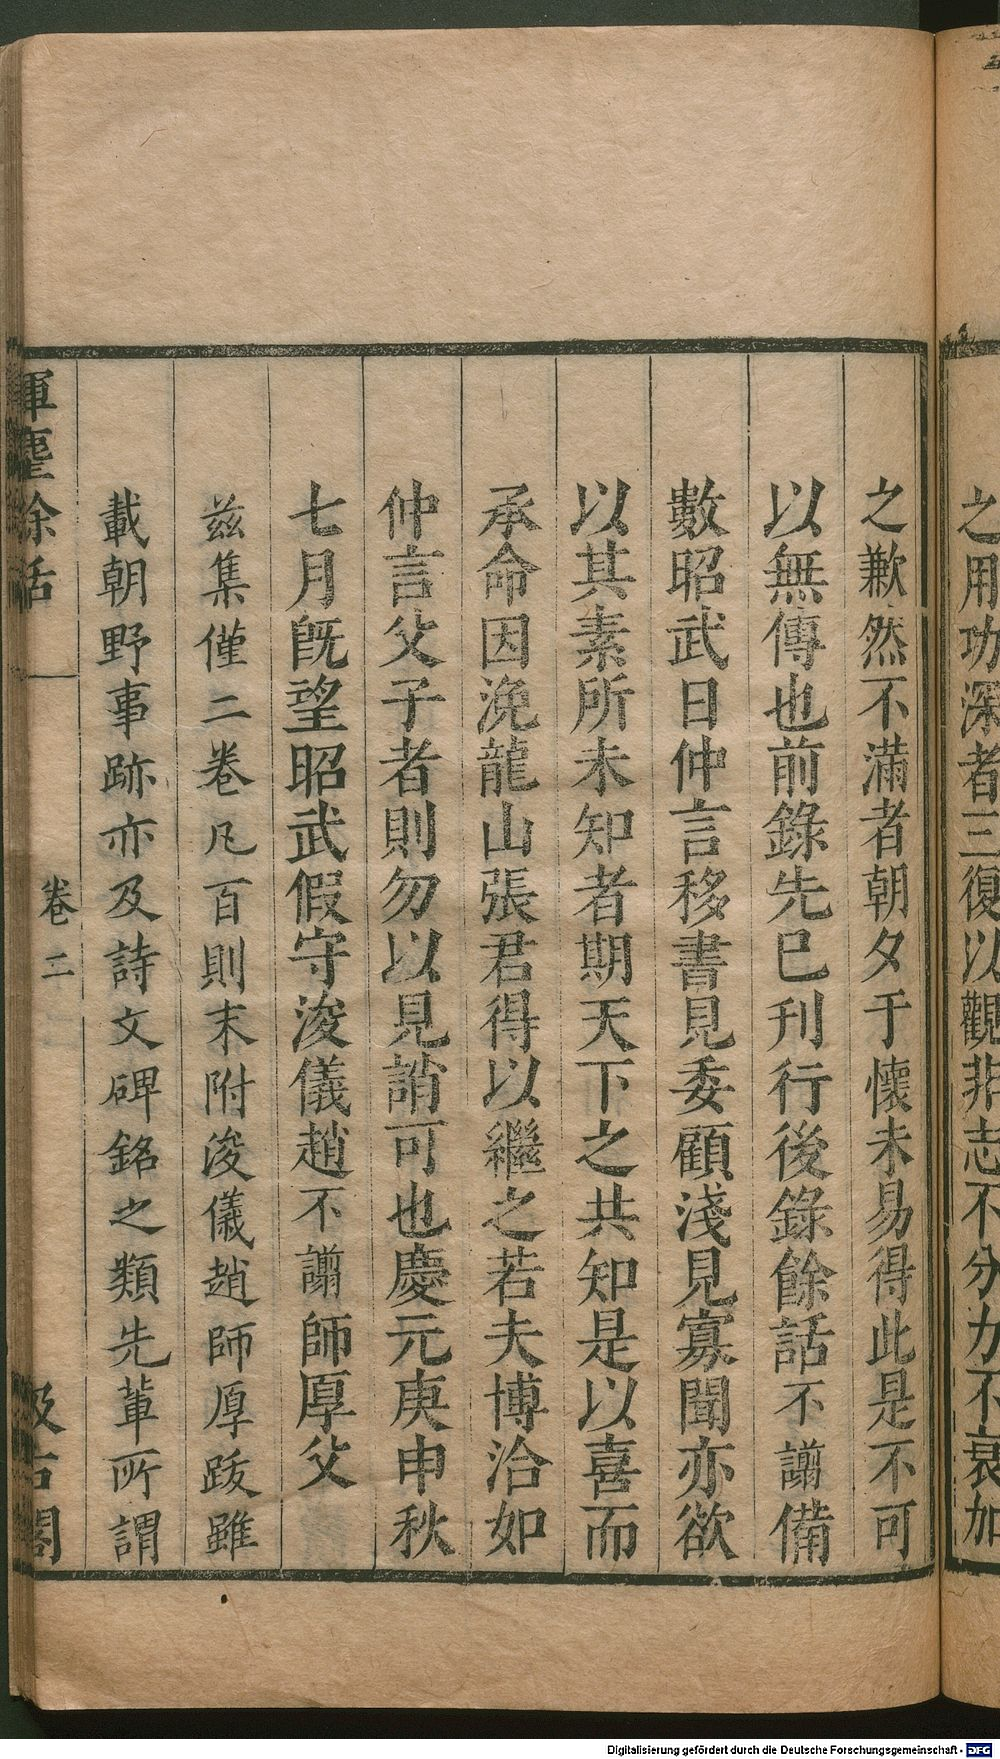 之用功深者三復以觀非志不分力不衰加
之歉然不滿者朝夕于懷未易得此是不可
以無傳也前錄先已刊行後錄餘話不譾備
數昭武日仲言移書見委顧淺見寡聞亦欲
以其素所未知者期天下之共知是以喜而
承命因浼龍山張君得以繼之若夫博洽如
仲言父子者則勿以見誚可也慶元庚申秋
七月旣望昭武假守浚儀趙不譾師厚父
兹集僅二卷凡百則末附浚儀趙師厚跋雖
載朝野事跡亦及詩文碑銘之類先軰所謂
揮麈餘話
卷二
汲古閣
Digitalisierung gefördert durch die Deutsche Forschungsgemeinschaft - DFG